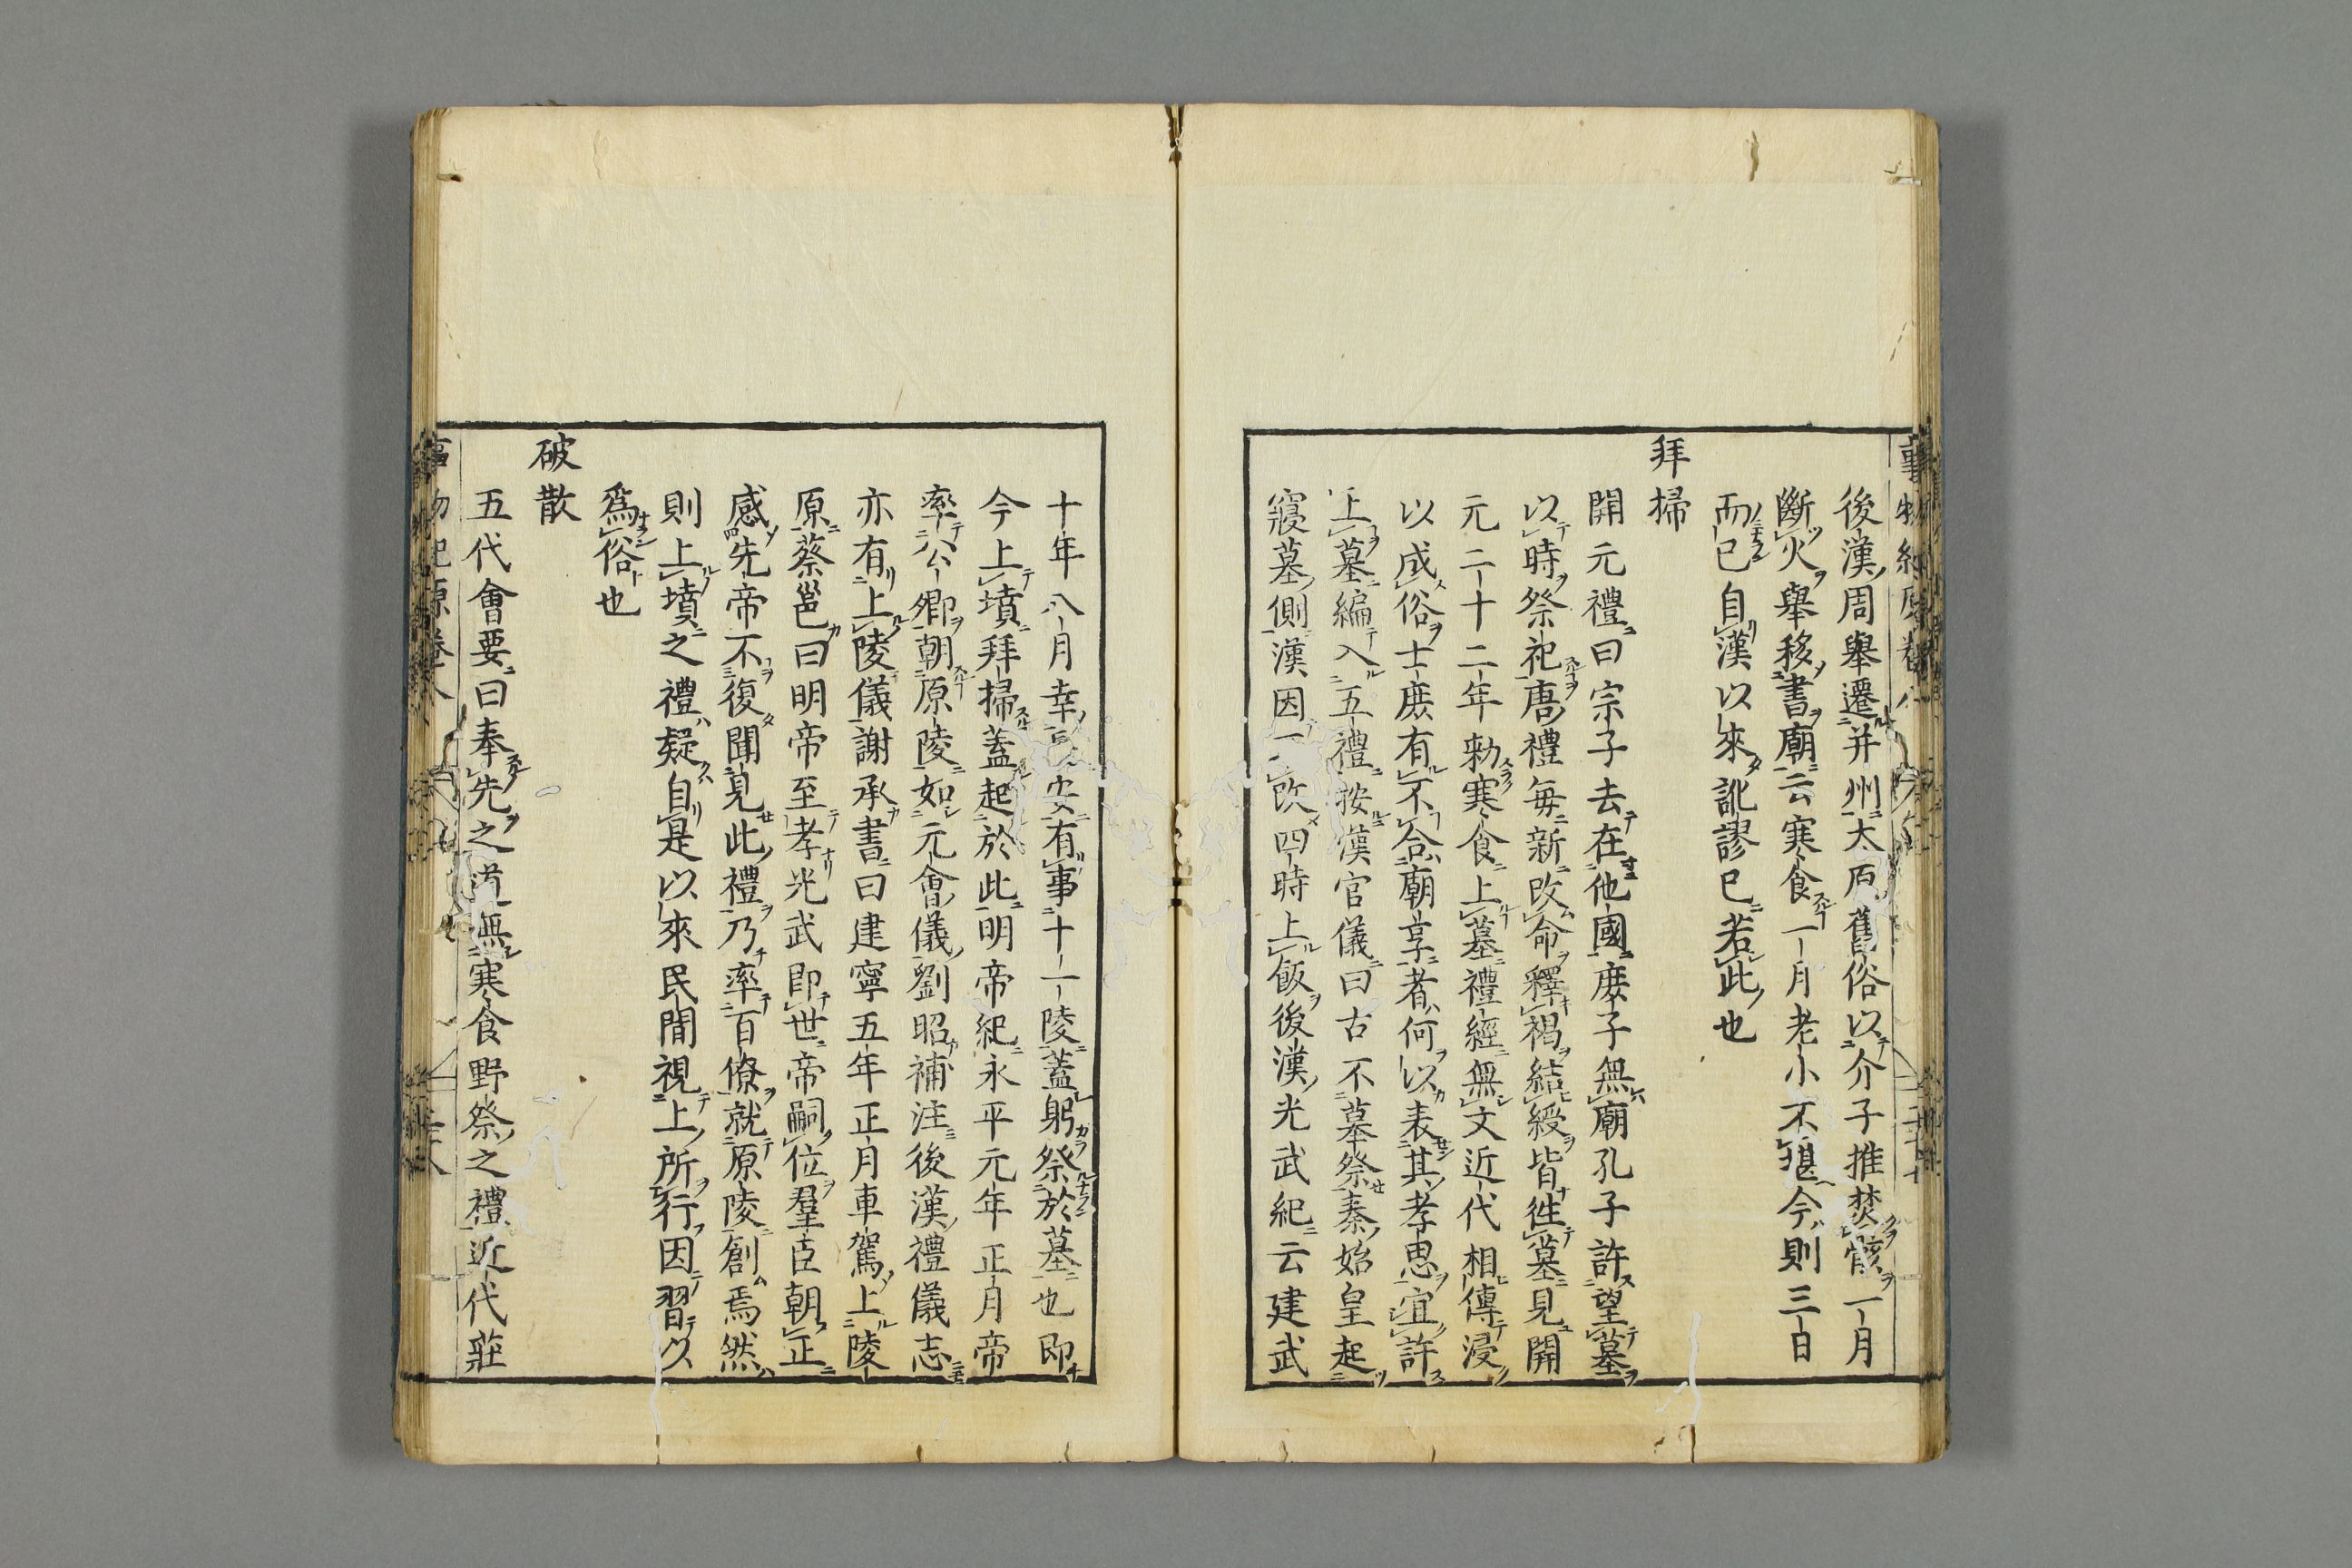 後漢周舉遷并州太原舊俗以介子推焚骸一月
斷火舉移書廟云寒食一月老小不堪今則三日
而已自漢以來訛謬已若此也
拜掃
開元禮曰宗子去在他國庶子無廟孔子許望墓
以時祭祀唐禮毎新改命釋褐結綬皆徃墓見開
元二十二年勅寒食上墓禮經無文近代相傳浸
以成俗士庶有不合廟享者何以表其孝思宜許
上墓編入五禮按漢官儀曰古不墓祭秦始皇起
寢墓側漢因而不改四時上飯後漢光武紀云建武
十年八月幸長安有事十一陵蓋躬祭於墓也即
今上墳拜掃蓋起於此明帝紀永平元年正月帝
率公卿朝原陵如元會儀劉昭補注後漢禮儀志
亦有上陵儀謝承書曰建寧五年正月車駕上陵
原蔡邕曰明帝至孝光武即世帝嗣位羣臣朝正
感先帝不復聞見此禮乃率百僚就原陵創焉然
則上墳之禮疑自是以來民間視上所行因習以
爲俗也
破散
五代會要曰奉先之道無寒食野祭之禮近代莊